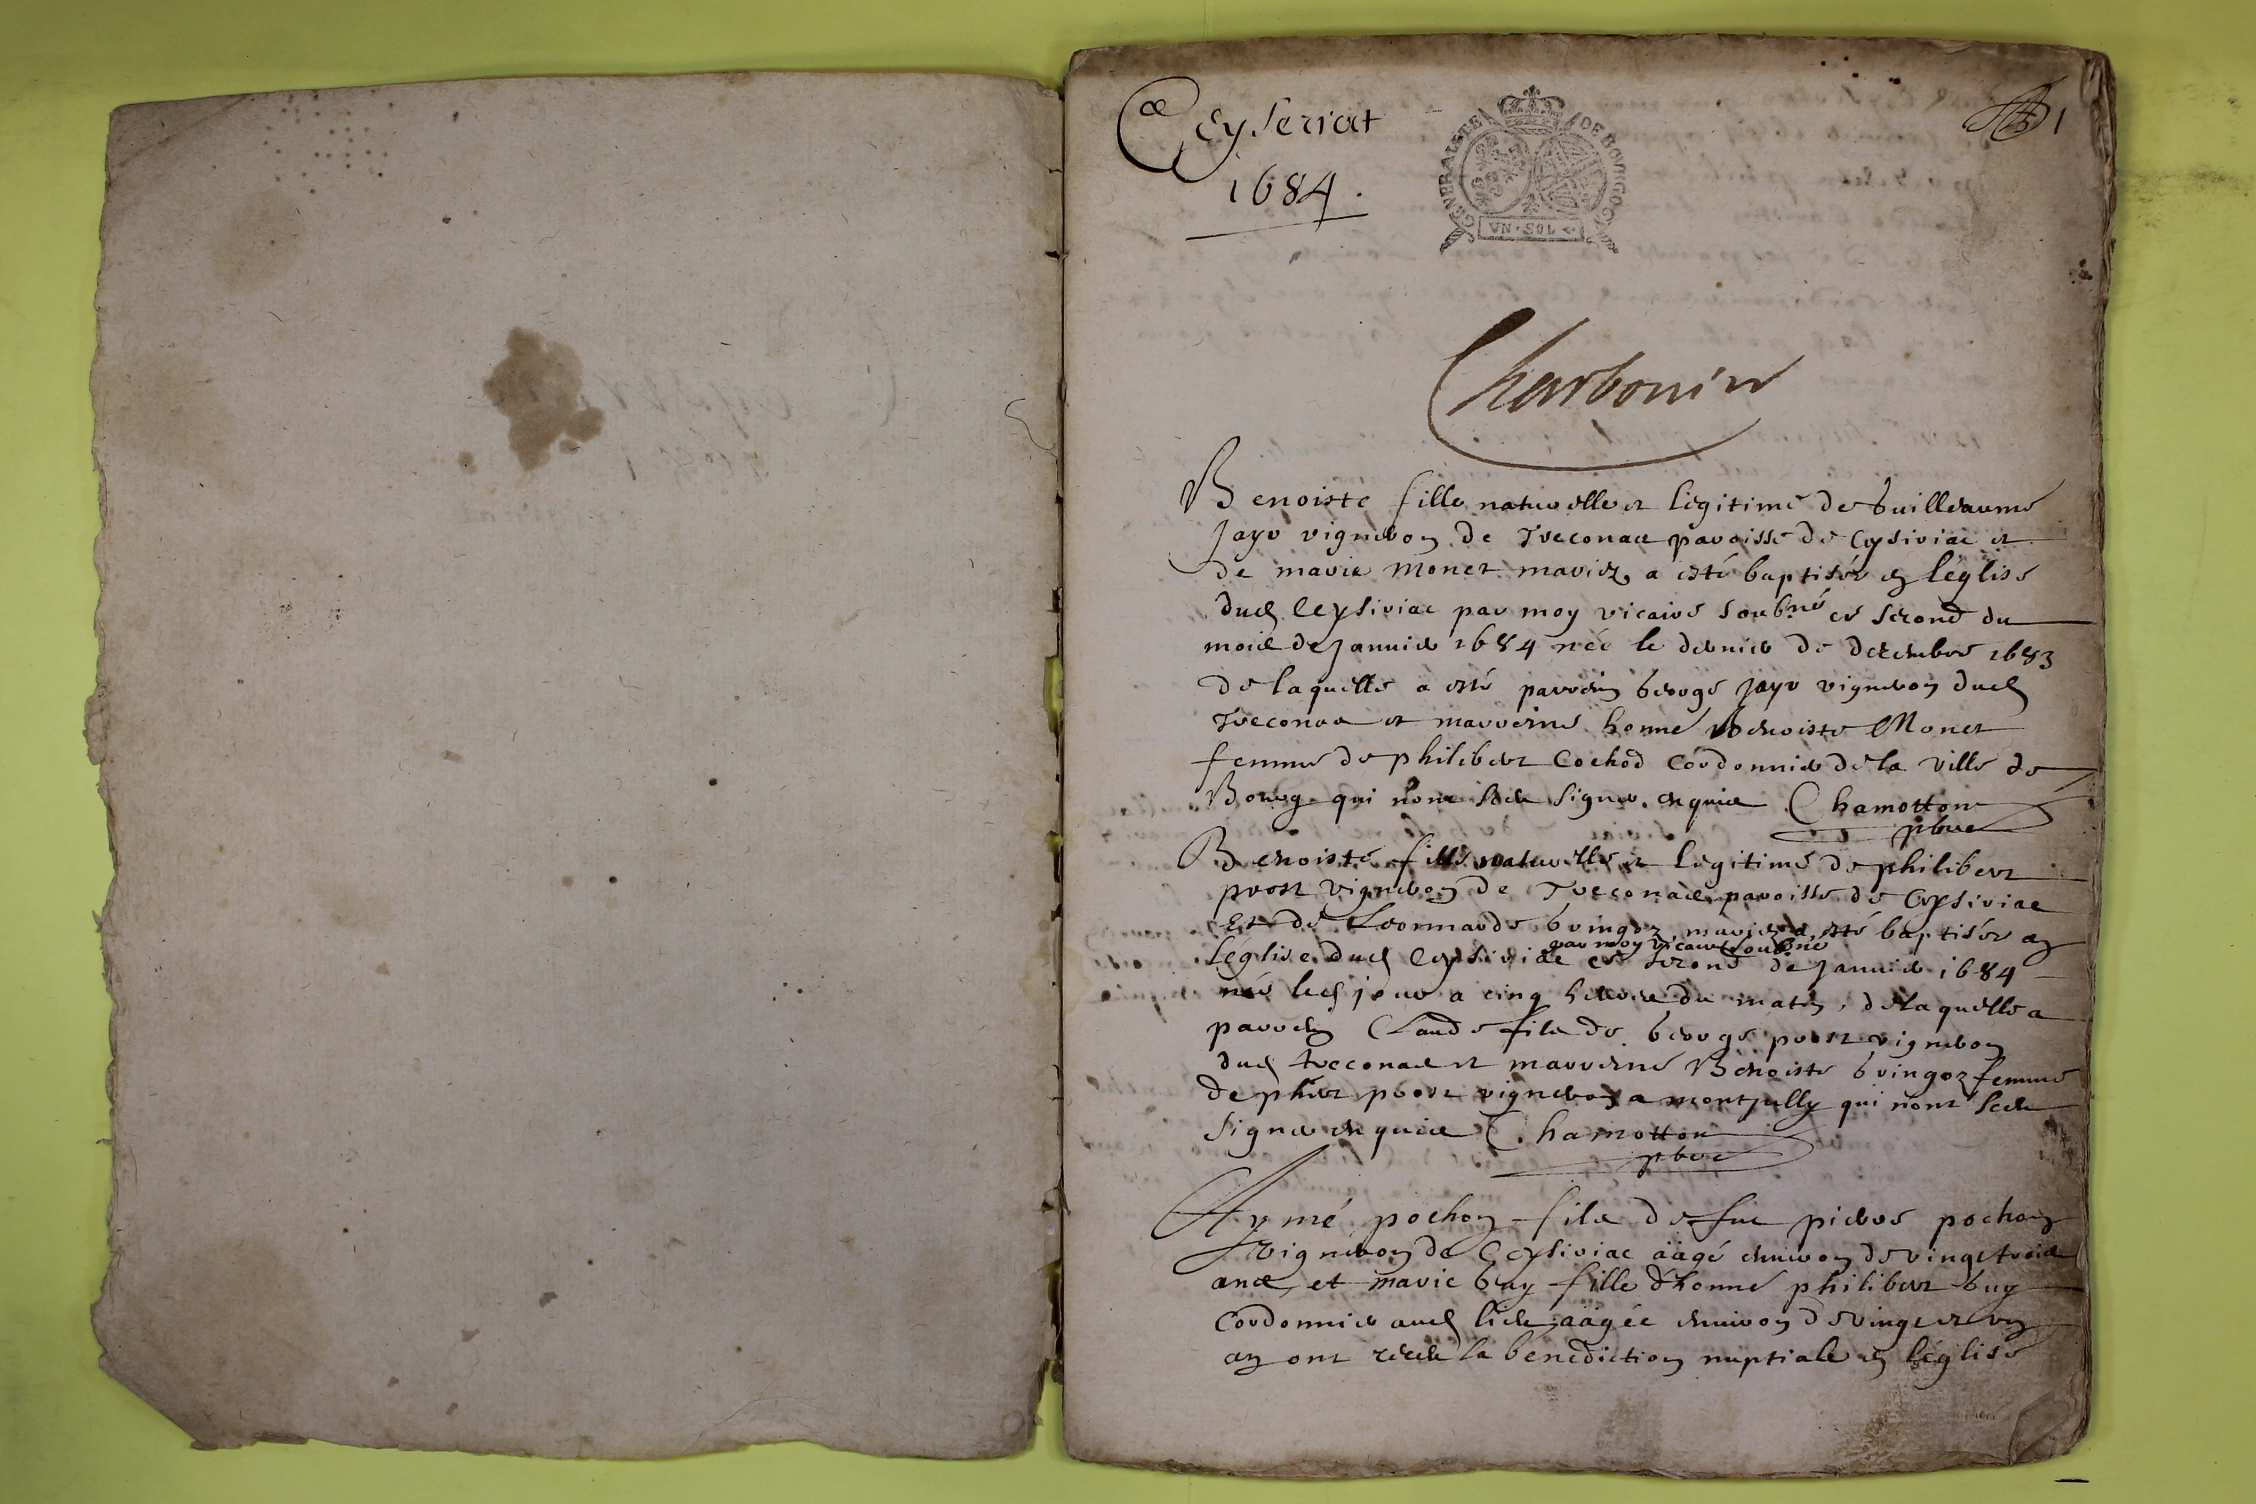 Ceyseriat
1684.
GENERALITE DE BOVRGOG
VN·SOL
1
Charbonier
Benoiste fille naturelle et légitime de Guilleaume
Jayr vigneron de Treconas paroisse de Ceysiriac et
de marie Monet mariez, a esté baptisée en léglise
dud. Ceysiriac par moy vicaire soubné ce second du
mois de Janvier 1684 née le dernier de decembre 1683
de laquelle a esté parrein George Jayr vigneron dud
Treconas et marreine honne Benoiste Monet
femme de philibert Cochod Cordonnier de la ville de
Bourg qui nont sceu signer, enquis Chamotton
pbre
Benoiste fille naturelle et légitime de philibert
prost vigneron de Treconas paroisse de Ceysiriac
Et de Leonnarde Gringoz mariez a esté baptisée en
Léglise dud Ceysiriac par moy vicaire soubné ce second de Janvier 1684
née led jour a cinq heures du matin, de laquelle a
parrein Claude fils de George prost vigneron
dud treconas et marreine Benoiste Gringoz femme
de phibert prost vigneron a montjully qui nont sceu
signer enquis Chamotton
pbre
Aymé pochon fils de fut pierre pochon
vigneron de Ceysiriac aagé environ de vingt trois
ans, et marie buy fille d'honné philibert buy
Cordonnier aud lieu aagée environ de vingt et un
an ont receu la bénédiction nuptiale en léglise